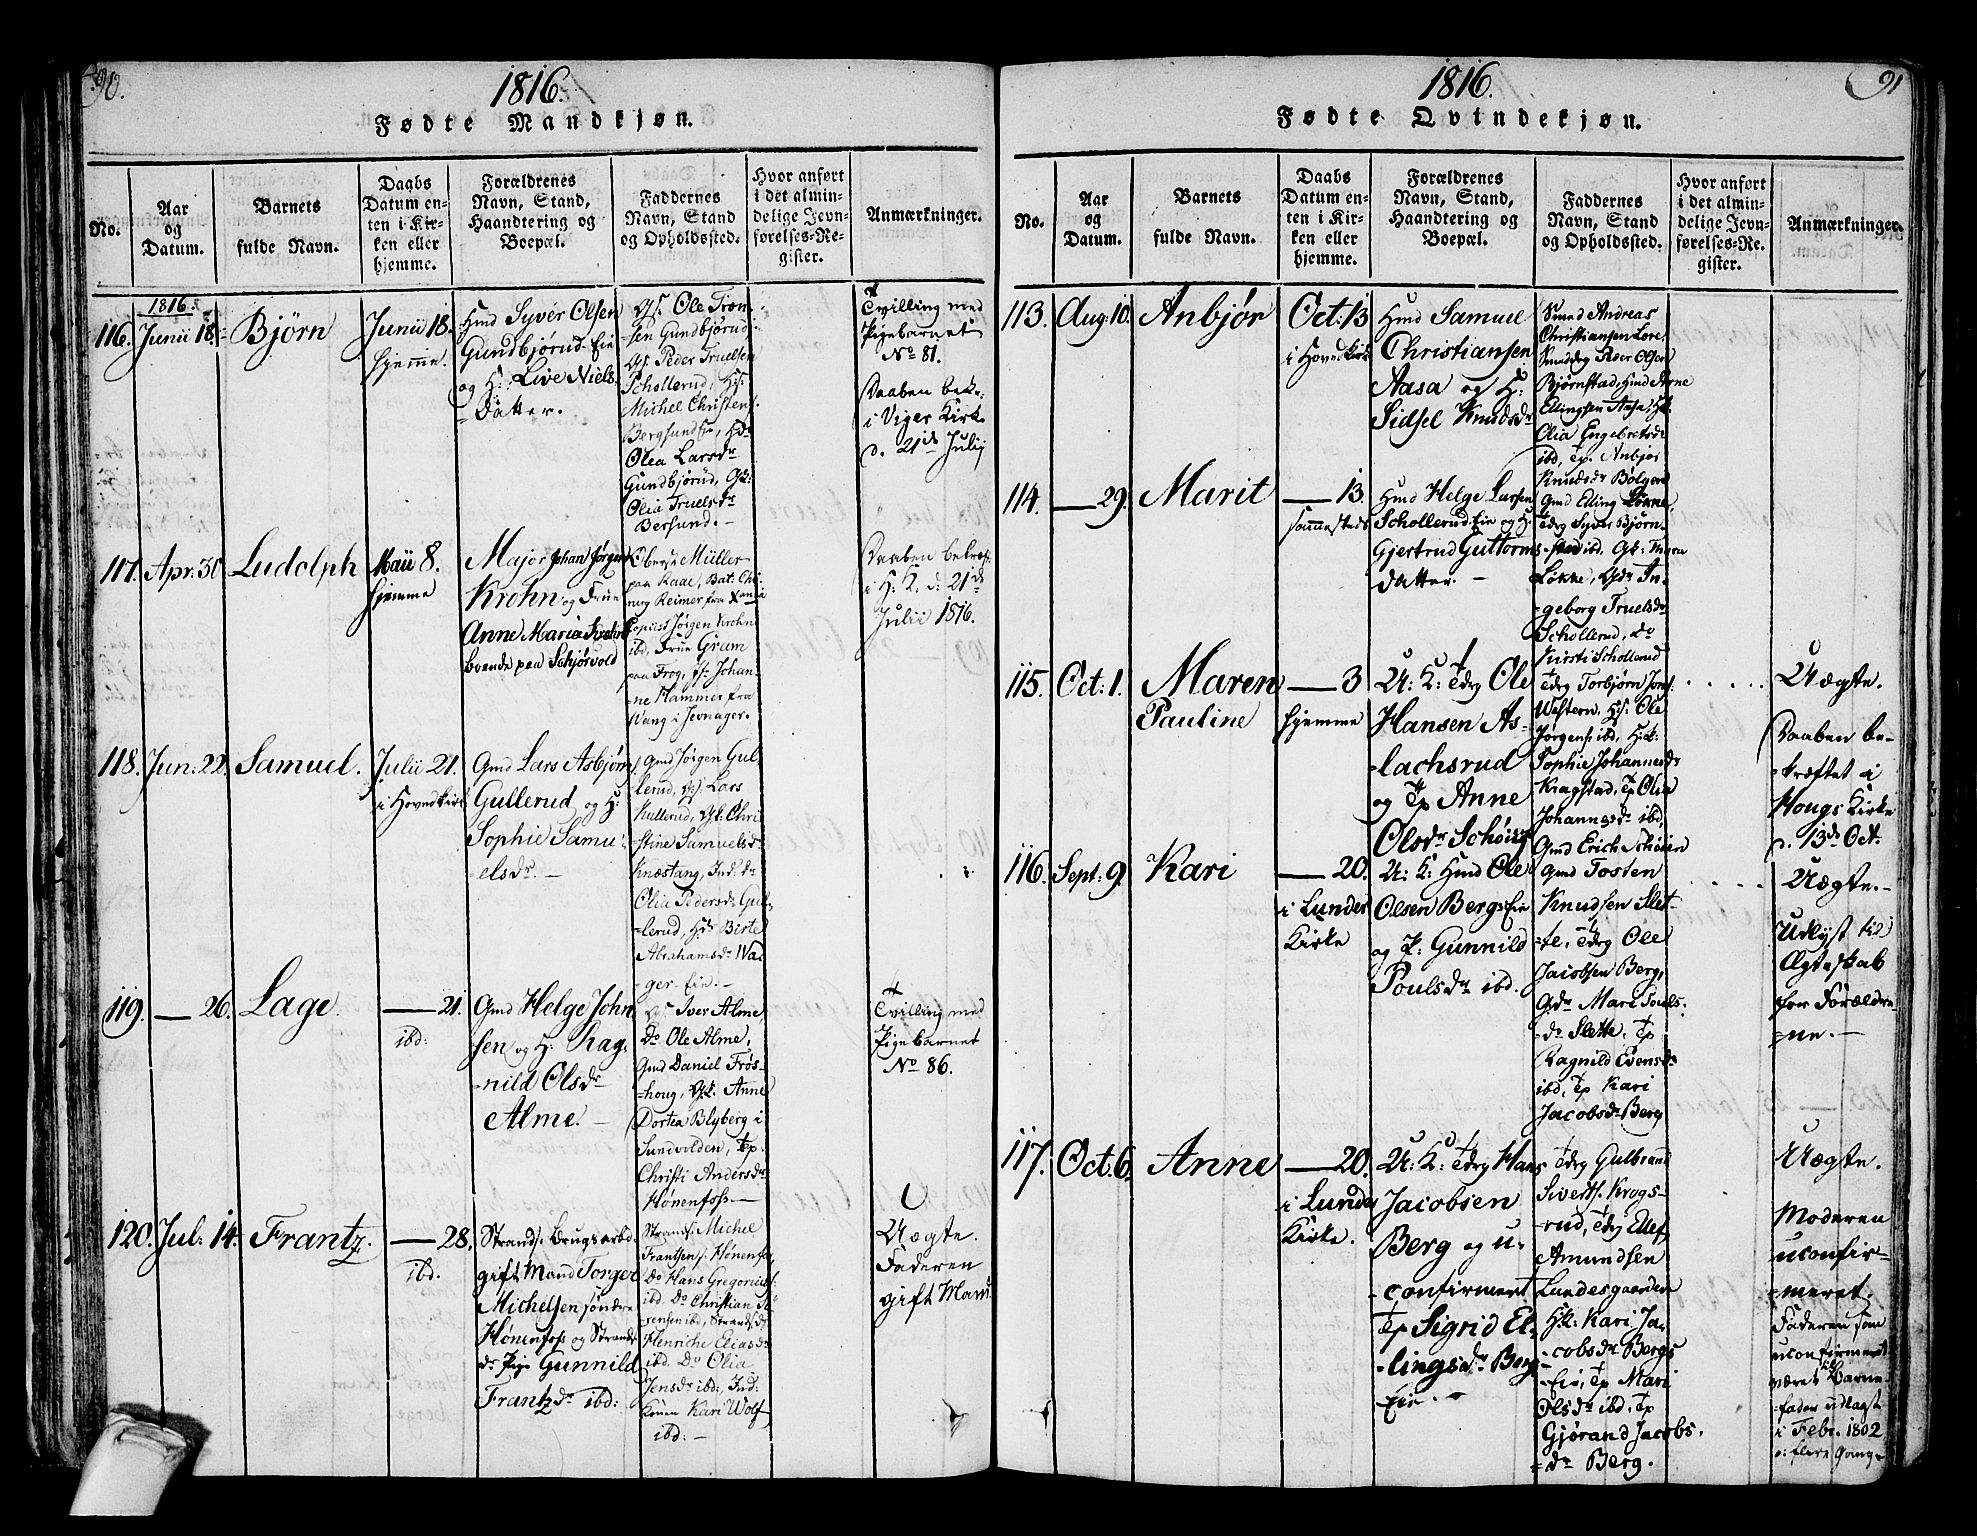 90.
1816.
Fødte Mandkjøn.
No.
Aar
og
Datum.
Barnets
fulde Navn.
Daabs
Datum en-
ten i Kir-
ken eller
hjemme.
Forældrenes
Navn, Stand,
Haandtering og
Boepæl.
Faddernes
Navn, Stand
og Opholdssted.
Hvor anført
i det almin-
delige Jevn-
førelses-Re-
gister.
Anmærkninger.
1816.
116. Junii 18. Bjørn
Junii 18.
hjemme.
Hmd Syver Olsen
Gundbjørud Eie
og H: Live Niels
Datter.
Gf. Ole Tron
sen Gundbjørud
Gf. Peder Truelsen
Schollerud, Hf:
Michel Christens.
Bergsund Eie, Hdr
Olea Larsdr
Gundbjørud, Gk:
Olia Truelsdr
Bersund.
Tvilling med
Pigebarnet
No 81.
Daaben bekr:
i Viger Kirke
d. 21de Julij
117. Apr: 30 Ludolph
Maii 8.
hjemme
Major Johan Jørgen
Krohn og Frue
Anne Maria Krohn
boende paa Schjørvold
Oberst Müller
paa Raae, Bat: Chi-
rurg Reimer fra Xania
Copiist Jørgen Krohn
ibd, Frue Gram
paa Frog, Jf. Johan-
ne Hammer fra
Wang i Jevnager.
Daaben bekræf:
i H. K. d. 21de
Julii 1816.
118. Jun: 22. Samuel.
Julii 21.
i Hovedkirk
Gmd Lars Asbjørns.
Gullerud og H:
Sophie Samu-
elsdr. -
Gmd Jørgen Gul-
lerud, Gf. Lars
Kullerud, Gk. Chri
stine Samuelsdr
Knæstang, Ind. dr
Olia Pedersdr Gul-
lerud, Hdr Birte
Abrahamsdr Wa
ger Eie. -
119. — 26. Lage.
— 21.
ibd:
Gmd Helge John
sen og H: Rag-
nild Olsdr
Alme. -
Gf. Iver Alme,
Do Ole Alme,
Gmd Daniel Frøs-
houg, Gk. Anne
Dortea Blyberg i
Sundvolden, Tp.
Christi Andersdr
Hønenfoss. —
Tvilling med
Pigebarnet
No 86.
120. Jul: 14. Frantz.
— 28.
ibd.
Strands. Brugsarbd.
gift Mand Torger
Michelsen søndre
Hønenfoss og Strands
dr Pige Gunnild
Frantzdr ibd:
Strands. Michel
Frantsen s. Hønenfos,
Do Hans Gregorius.
ibd. Do Christian Sø
rensen ibd, Strands. dr
Henriche Eliasdr
ibd. Do Olia
Jensdr ibd:, Ind:
konen Kari Wolf
ibd: —
Uægte.
Faderen
gift Mand
91
1816.
Fødte Qvindekjøn.
No.
Aar
og
Datum.
Barnets
fulde Navn.
Daabs
Datum en-
ten i Kir-
ken eller
hjemme.
Forældrenes
Navn, Stand,
Haandtering og
Boepæl.
Faddernes
Navn, Stand
og Opholdssted.
Hvor anført
i det almin-
delige Jevn-
førelses-Re-
gister.
Anmærkninger.
113. Aug: 10. Anbjør
Oct: 13
i Hovedkirk
Hmd Samuel
Christiansen
Aasa og H:
Sidsel Knudsdr
Smed Andreas
Christiansen Lore,
Smeddrg Peer Olsen
Bjørnstad, Hmd Arne
Ellingsen Aasa, Hk.
Olia Engebretsdr
ibd, Tp. Anbjør
Knudsdr Bølgen
114. — 29. Marit
— 13.
sammesteds
Hmd Helge Larsen
Schollerud Eie og H.
Gjertrud Guttorms
datter. —
Gmd Elling Løkke,
Tdrg Syver Bjørn-
stad ibd, Gk: Thorn
Løkke, Gdr In-
geborg Truelsdr
Schollerud, do
Kirsti Schollerud
115. Oct: 1. Maren
Pauline
— 3
hjemme
U: K: Tdrg Ole
Hansen As-
lachsrud
og Tp Anne
Olsdr Schøien
Tdrg Torbjørn Jons.
Western, Hf: Ole
Jørgens: ibd, Hk:
Sophie Johannesdr
Kragstad, Tp Olia
Johannesdr ibd,
Gmd Erich Schøien
Uægte.
Daaben be-
kræftet i
Hougs Kirke
d. 13de Oct.
116. Sept: 9. Kari
— 20.
i Lunder
Kirke
U: K: Hmd Ole
Olsen Bergs Eie
og P: Gunnild
Poulsdr ibd.
Gmd Tosten
Knudsen Slet-
te, Tdrg Ole
Jacobsen Berg,
Gdr Mari Pouls-
dr Slette, Tp
Ragnild Evensdr
ibd, Tp Kari
Jacobsdr Berg
Uægte. -
Udlyst til
Ægteskab
for Forældre
ne. —
117. Oct: 6. Anne
— 20.
i Lunde
Kirke.
U: K: Tdrg Hans
Jacobsen
Berg og u-
confirmert
Tp Sigrid El-
lingsdr Berg
Eie. -
Tdrg Gulbrand
Siverts. Krogs-
rud, Tdrg Ellef
Amundsen
Lundesgaarden
Hk: Kari Ja-
cobsdr Bergs
Eie, Tp Mari
Olsdr ibd, Tp
Gjørand Jacobs.
dr Berg.
Uægte.
Moderen
uconfir-
meret.
Faderen som
uconfirmeret
været til Barne-
fader udlagt
i Febr. 1802
o: flere Gange